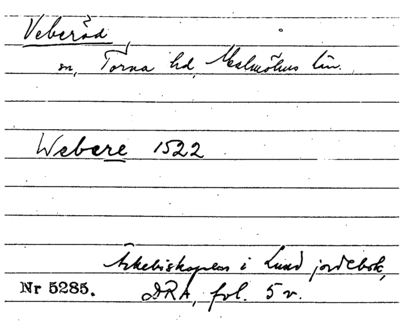 Veberöd
sn, Torna hd, Malmöhus län.
Webere 1522
Ärkebiskopens i Lund jordebok,
Nr 5285. DRA, fol. 5 v.